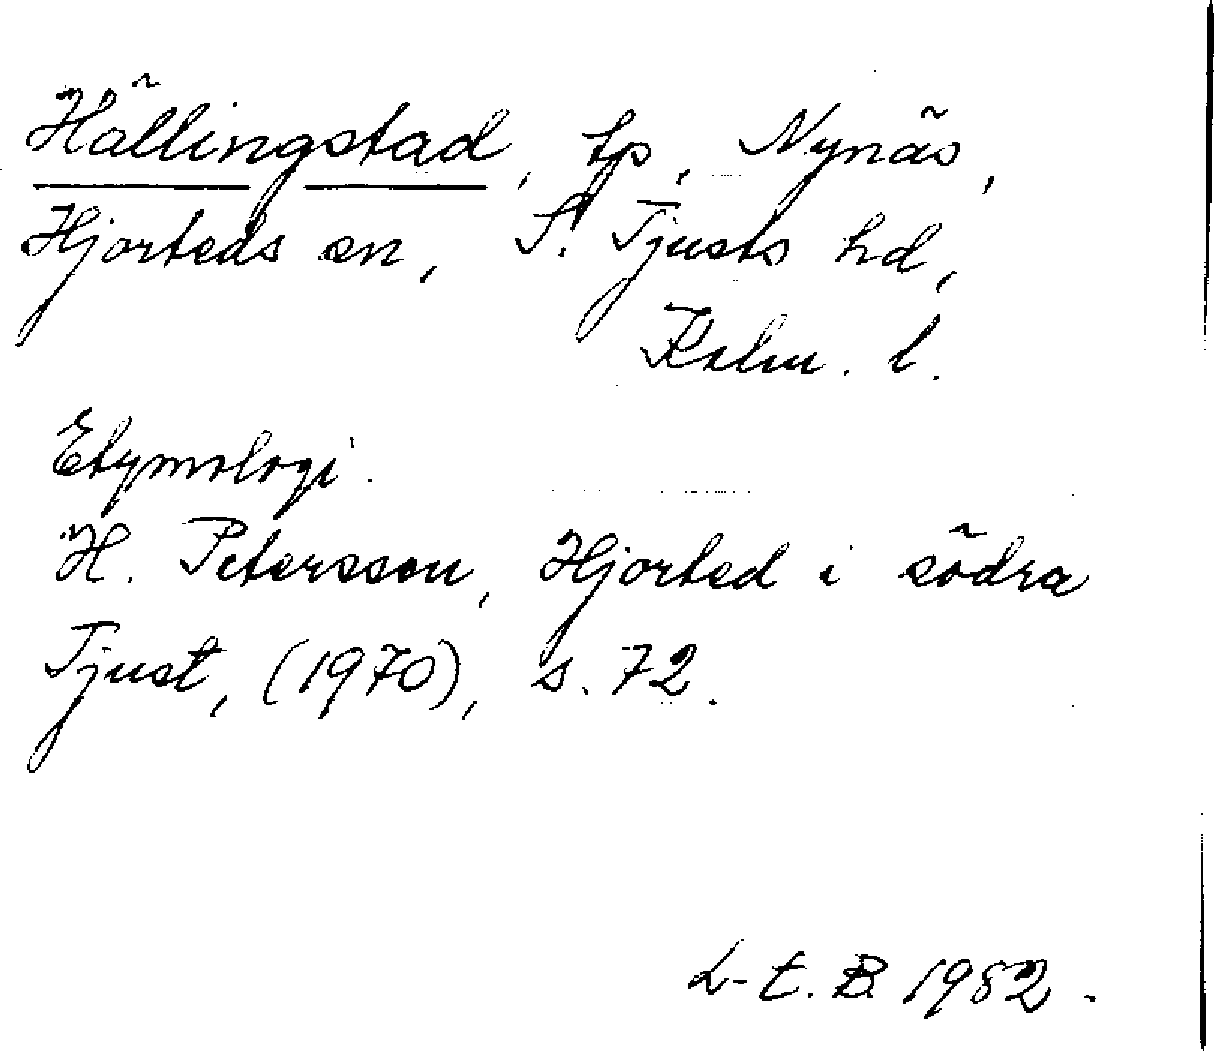 Hällingstad, tp, Nynäs,
Hjorteds sn, S. Tjusts hd,
Kalm. l.
Etymologi.
H. Petersson, Hjorted i södra
Tjust, (1970), s. 72.
L-E. B 1982.